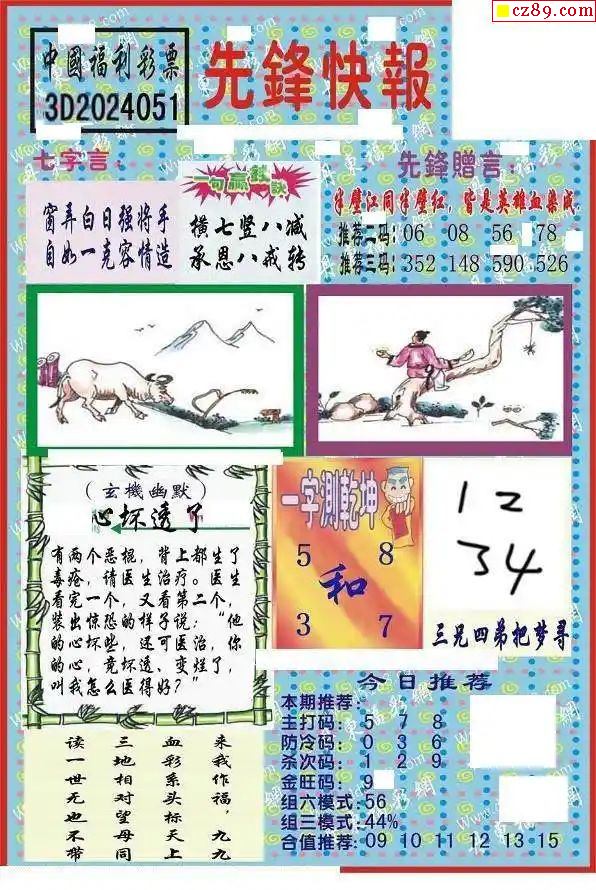 cz89.com
中國福利彩票
3D2024051
先鋒快報
七字言：
窗弄白日强將手
自如一克容情造
一句赢錢訣
橫七竖八减
承恩八戒转
先鋒贈言：
半壁江同半壁红，皆是英雄血染成
推荐二码：06 08 56 78
推荐三码：352 148 590 526
（玄機幽默）
心坏透了
有两个恶棍，背上都生了
毒疮，请医生治疗。医生
看完一个，又看第二个，
装出惊恐的样子说：“他
的心坏些，还可医治，你
的心，竟坏透、变烂了，
叫我怎么医得好？”
一字测乾坤
5 8
和
3 7
12
34
三兄四弟把梦寻
来我作福，九九
血彩系头标天上
三地相对望母同
读一世无也不带
今日推荐
本期推荐：
主打码：5 7 8
防冷码：0 3 6
杀次码：1 2 9
金旺码：9
组六模式：56
组三模式：44%
合值推荐：09 10 11 12 13 15